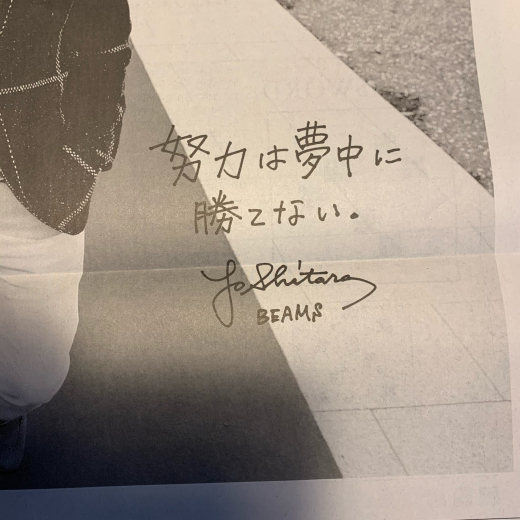 努力は夢中に
勝てない。
Yo Shitara
BEAMS